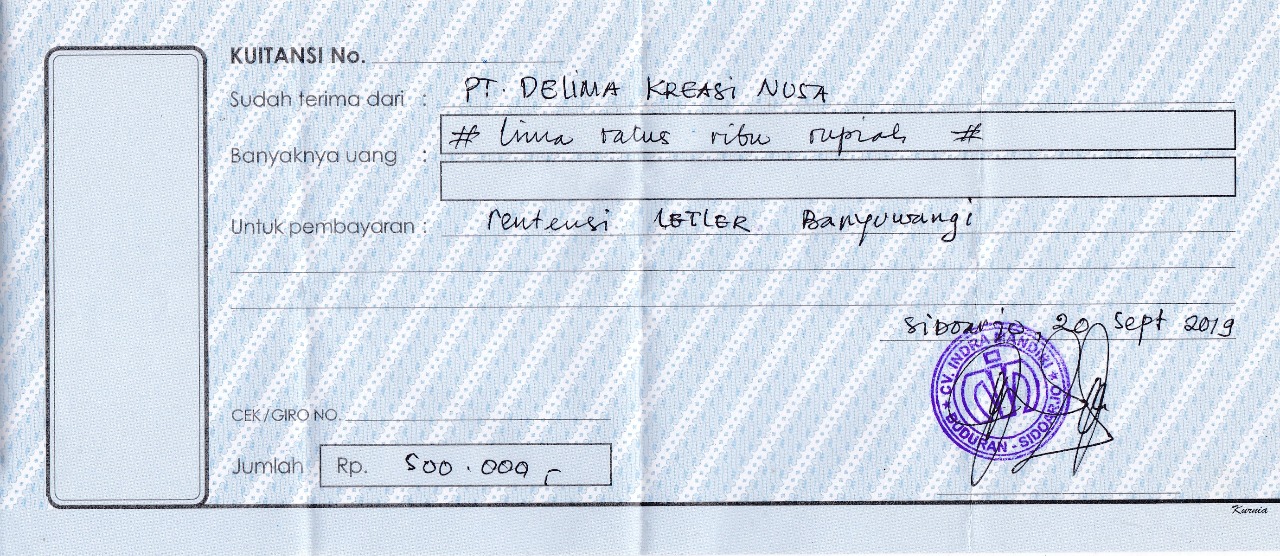 KUITANSI No.
Sudah terima dari : PT. DELIMA KREASI NUSA
Banyaknya uang : # lima ratus ribu rupiah #
Untuk pembayaran : rentensi LETLER Banyuwangi
Sidoarjo, 20 Sept 2019
CV. INDRA MANDIRI
BUDURAN - SIDOARJO
CEK/GIRO NO.
Jumlah Rp. 500.000,-
Kurnia